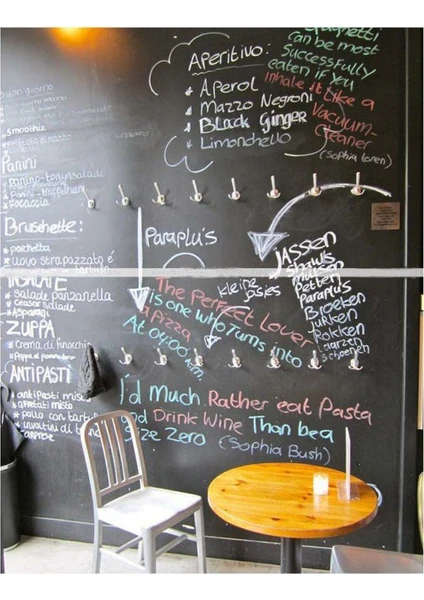 Spaghetti
can be most
Successfully
eaten if you
inhale it like a
Vacuum-
Cleaner
(Sophia Loren)
Aperitivo:
* Aperol
* Mazzo Negroni
* Black Ginger
* Limonchello
Buongiorno
Smoothie
Panini
* Panino-tonijnsalade
* Focaccia
Bruschette:
* porchetta
* uovo strapazzato é
tartufo
INSALATE
* Salade panzanella
* Ceasar salade
* Asparagi
ZUPPA
* Crema di finocchio
* Pappa al pomodoro
ANTIPASTI
* antipasti misti
* affettati misti
* pollo con tartufo
* involtini di
* Caprese
Paraplu's
Kleine
jasjes
JASSEN
Shawls
mutsen
Petten
Paraplu's
Broeken
Jurken
Rokken
Laarzen
Schoenen
The Perfect Lover
is one who Turns into
a pizza
At 04:00 a.m.
I'd Much Rather eat Pasta
and Drink Wine Than be a
Size Zero (Sophia Bush)